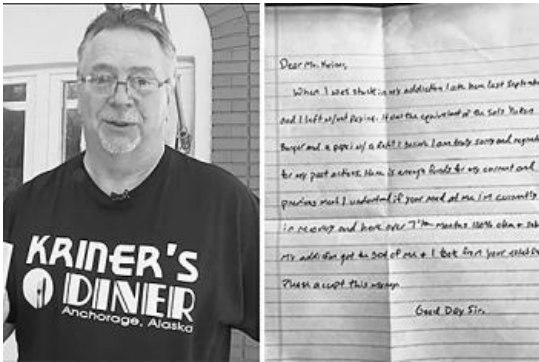 KRINER'S
DINER
Anchorage, Alaska
Dear Mr.
When I was stuck in my addiction I ate here last September
and I left w/out paying. It was the equivalent of the Solo Yukon
Burger and a pepsi w/ a Refill I am truly sorry and
for my past actions. Here is enough funds for my current and
previous meal. I understand if your mad at me I'm currently
in recovery and have over 7 months 100% clean + sober
my addiction got the best of me + I took from your
Please accept this
Good Day Sir,